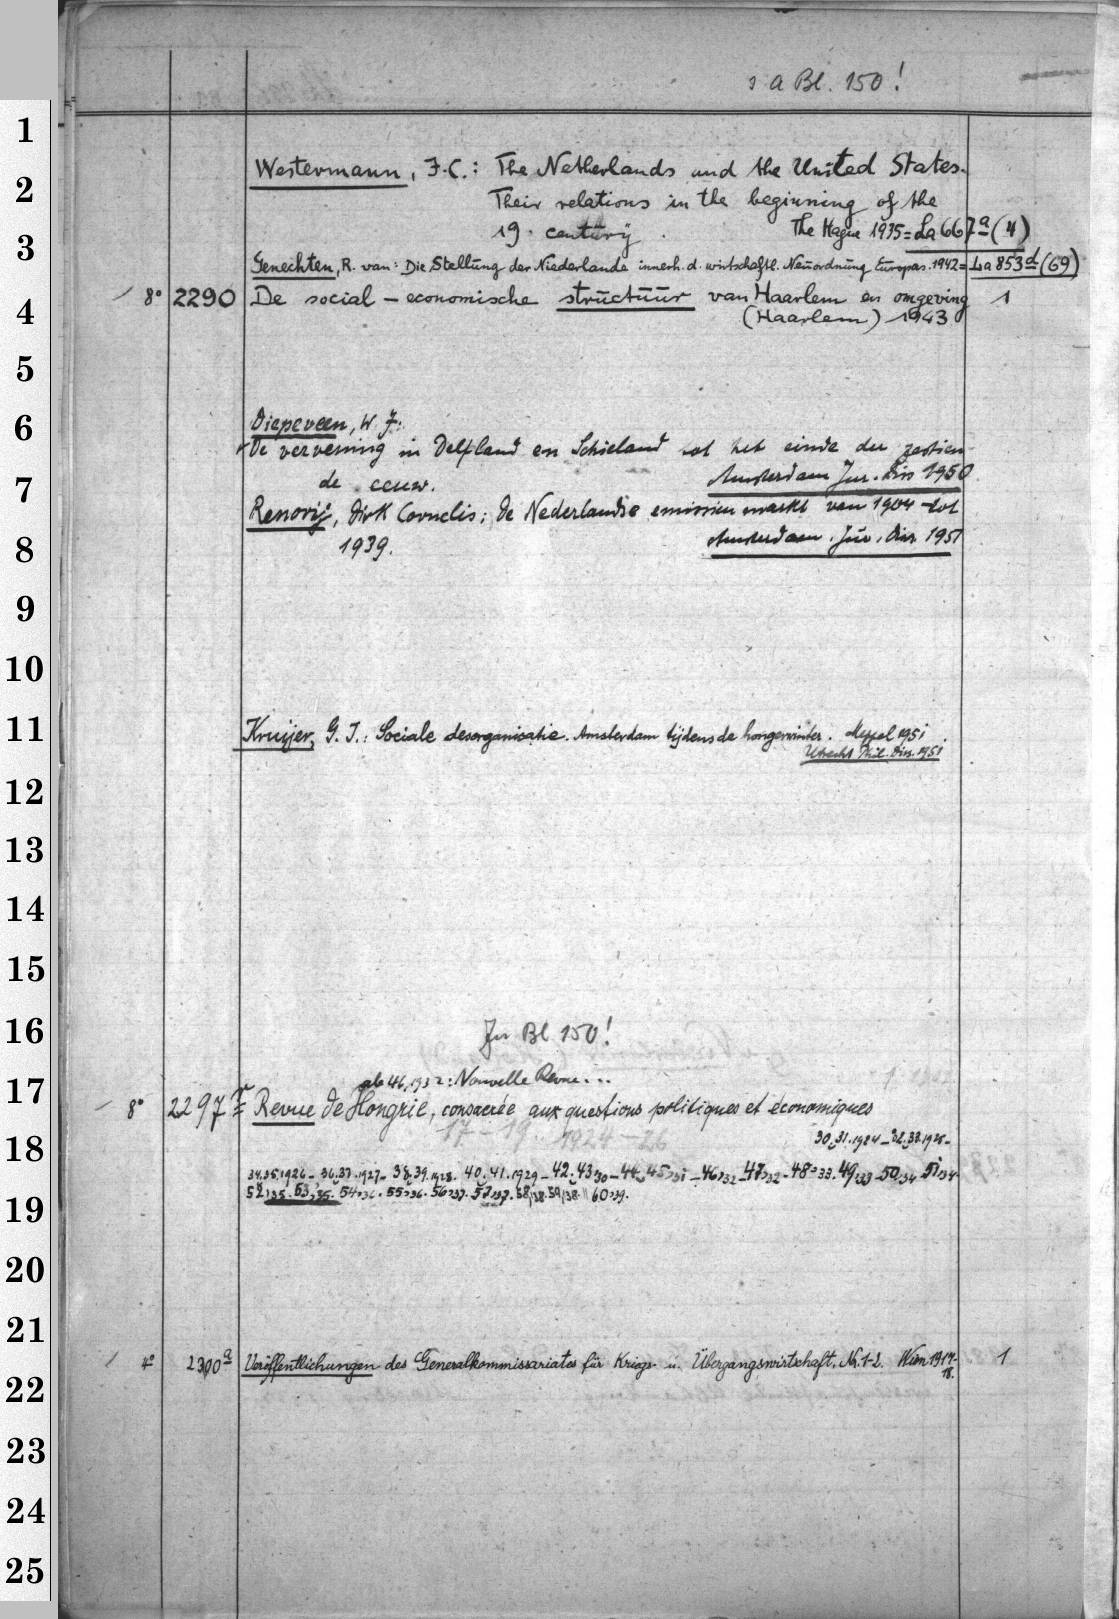 s a Bl. 150!
1
Westermann, J.C.: The Netherlands and the United States.
2
Their relations in the beginning of the
19. century. The Hague 1935 = La 667ª (4)
3
Genechten, R. van: Die Stellung der Niederlande innerh. d. wirtschaftl. Neuordnung Europas. 1942 = La 853d (69)
/ 8° 2290 De social-economische structuur van Haarlem en omgeving 1
4
(Haarlem) 1943
5
6
Diepeveen, W. J.:
De vervening in Delfland en Schieland tot het einde der zestien
7
de eeuw. Amsterdam Jur. Diss 1950
Renooij, Dirk Cornelis: de Nederlandse emissiemarkt van 1904 tot
8
1939. Amsterdam. Jur. Diss. 1951
9
10
11
Kruijer, G. J.: Sociale desorganisatie. Amsterdam tijdens de hongerwinter. Meppel 1951
Utrecht Phil. Diss. 1951
12
13
14
15
16
Zu Bl 150!
17
ab 46, 1932: Nouvelle Revue...
/ 8° 2297 Revue de Hongrie, consacrée aux questions politiques et économiques
17 – 19 1924 – 26
18
30,31.1924 – 32,33.1925 –
34,35.1926 – 36,37.1927 – 38,39.1928. 40,41.1929 – 42,43,30 – 44,45,31 – 46,32 – 47,32 – 48,33. 49,33 – 50,34 51,34
52,35. 53,35. 54,36. 55,36. 56,37. 57,37. 58,38. 59,38. 60,39.
19
20
21
/ 4° 2300ª Veröffentlichungen des Generalkommissariates für Kriegs- u. Übergangswirtschaft. Nr. 1-2. Wien 1917-18. 1
22
23
24
25